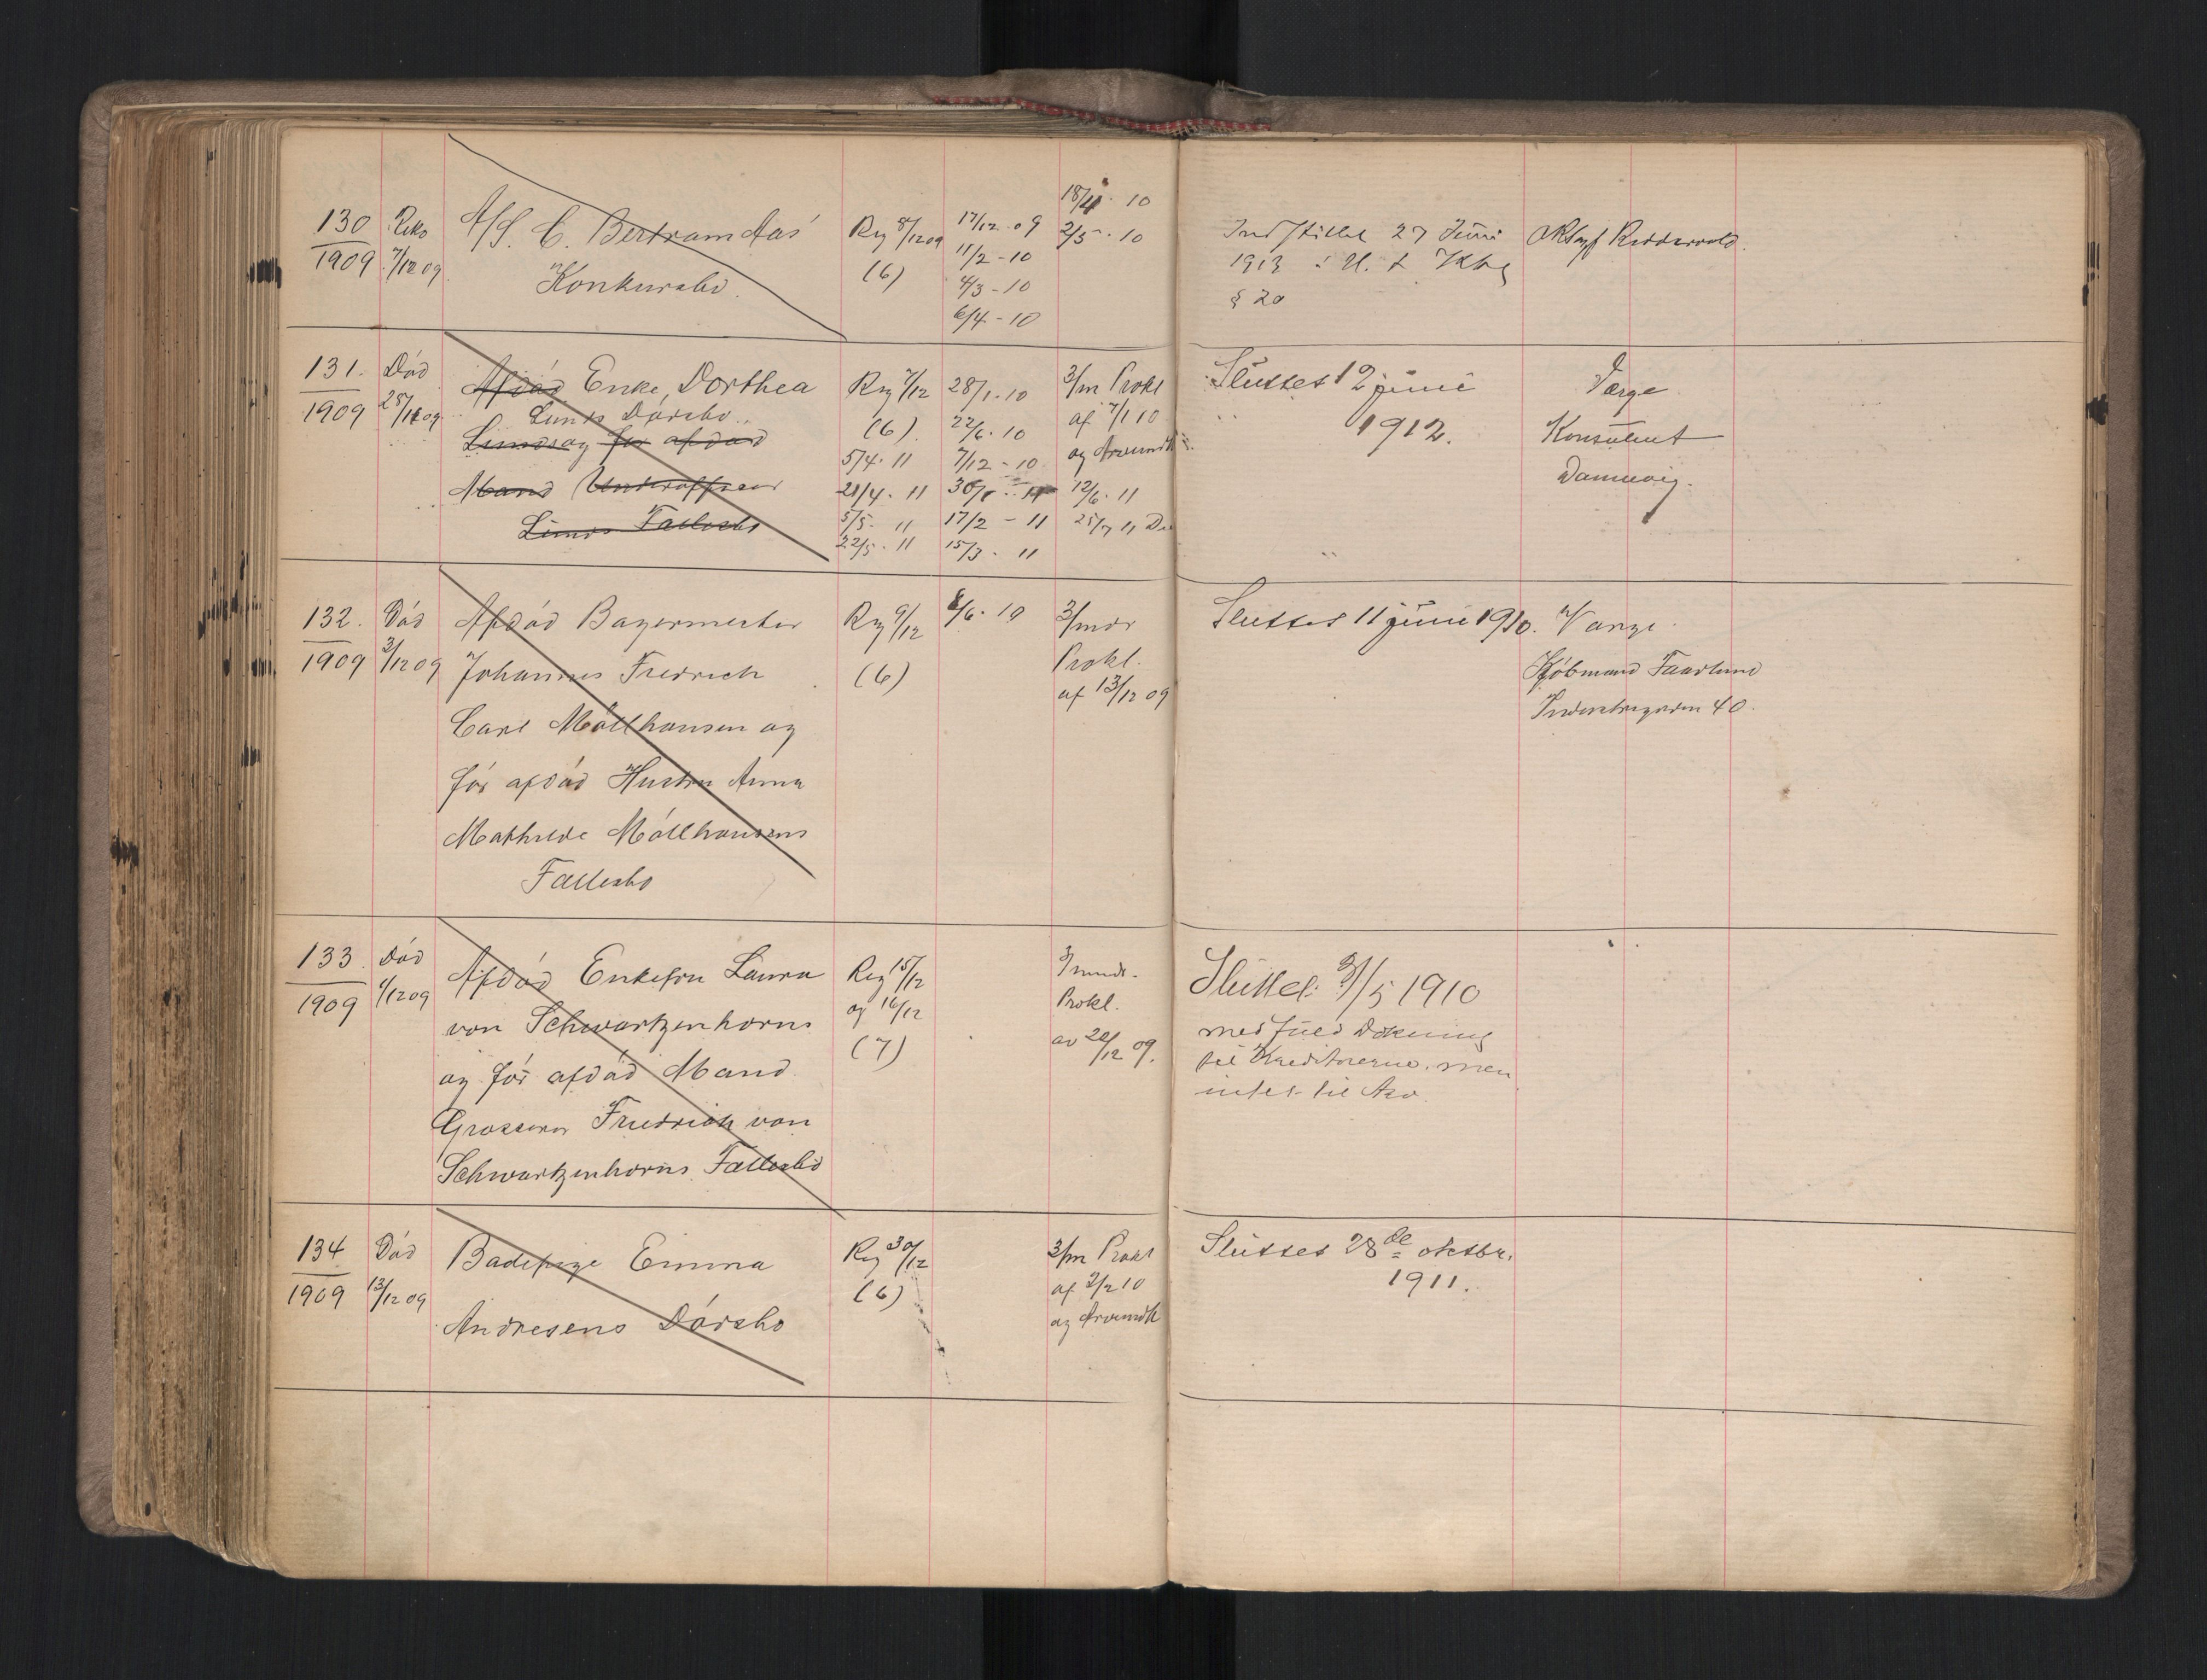 130 Reko A/S. C. Bertram Aas' Reg 8/12 09 17/12 - 09 18/4 - 10
1909 7/12 09 Konkursbo. (6) 11/2 - 10 2/5 - 10
4/3 - 10
6/4 - 10
Indstillet 27 Juni
1913 i H. t. Kkl
§ 20
131. Död Afdöd Enke, Dorthea Reg 7/12 28/1. 10 3/m Prokl
1909 28/11 09 Lunds Dödsbo (6) 22/6. 10 af 7/1 10
Lunds og för afdöd 5/4. 11 7/12 - 10 og Arveindk
Mand Underofficer 21/4. 11 30/1 - 11 12/6. 11
Lunds Fællesbo 5/5. 11 17/2 - 11 25/7 11
22/5. 11 15/3. 11
Sluttet 12 juni Værge
1912. Konsulent
Dannevig.
132. Död Afdöd Bagermester Reg 9/12 8/6. 10 3/mdr
1909 3/12 09 Johannes Fredrich (6) Prokl.
Carl Möllhausen og af 13/12 09
för afdöd Hustru Anna
Mathilde Möllhausens
Fællesbo
Sluttet 11 juni 1910. Værge
Kjöbmand Faarlund
Industrigaden 40.
133. Död Afdöd Enkefru Laura Reg 15/12 3 mndr.
1909 1/12 09 von Schwartzenhorns og 16/12 Prokl.
og för afdöd Mand (7) av 20/12 09.
Grosserer Friedrich von
Schwartzenhorns Fællesbo
Sluttet 3/5 1910
med fuld Dækning
til Kreditorerne, men
intet til Arv.
134 Död Badepige Emma Reg 30/12 3/m Prokl
1909 13/12 09 Andresens Dödsbo (6) af 3/2 10
og Arveindk
Sluttet 28de oktbr.
1911.